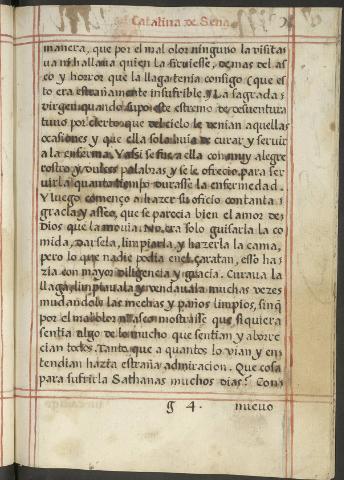 Catalina de Sena
manera, que por el mal olor ninguno la visita
ua ni hallaua quien la siruiesse, demas del as
co y horror que la llaga tenia consigo (que es
to era estrañamente insufrible. La sagrada
virgen quando supo este estremo de desuentura
tuuo por cierto que del cielo le venian aquellas
ocasiones y que ella sola huia de curar y seruir
a la enferma. Y assi se fue a ella con muy alegre
rostro y dulces palabras y se le ofrecio para ser
uirla quanto tiempo durasse la enfermedad.
Y luego començo a hazer su oficio con tanta
gracia y asseo, que se parecia bien el amor de
Dios que la mouia. No era solo guisarla la co
mida, darsela, limpiarla y hazerla la cama,
pero lo que nadie podia en el çaratan, esso ha
zia con mayor diligencia y gracia. Curaua la
llaga, limpiauala y vendauala muchas vezes
mudandole las mechas y paños limpios, sin q
por el mal olor ni asco mostrasse que si quiera
sentia algo de lo mucho que sentian y aborre
cian todos. Tanto que a quantos lo vian y en
tendian hazia estraña admiracion. Que cosa
para sufrirla Sathanas muchos dias? Como
g 4. nueuo